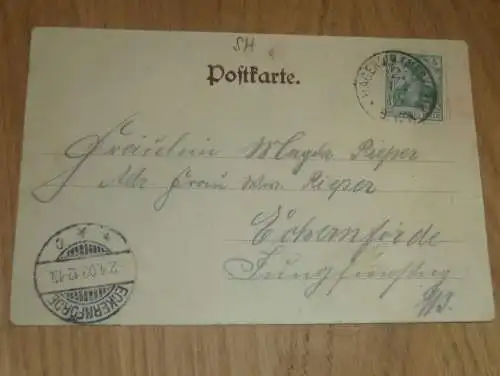 SH
Postkarte.
Fräulein Magda Pieper
Adr. Frau Ww. Pieper
Eckernförde
Jungfernstieg
ECKERNFÖRDE
* * C
2.4.02.12-1N